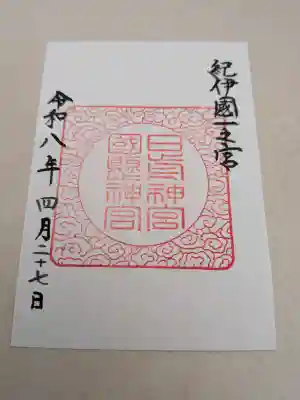 紀伊國一之宮
日前神宮
國懸神宮
令和八年 四月二十七日